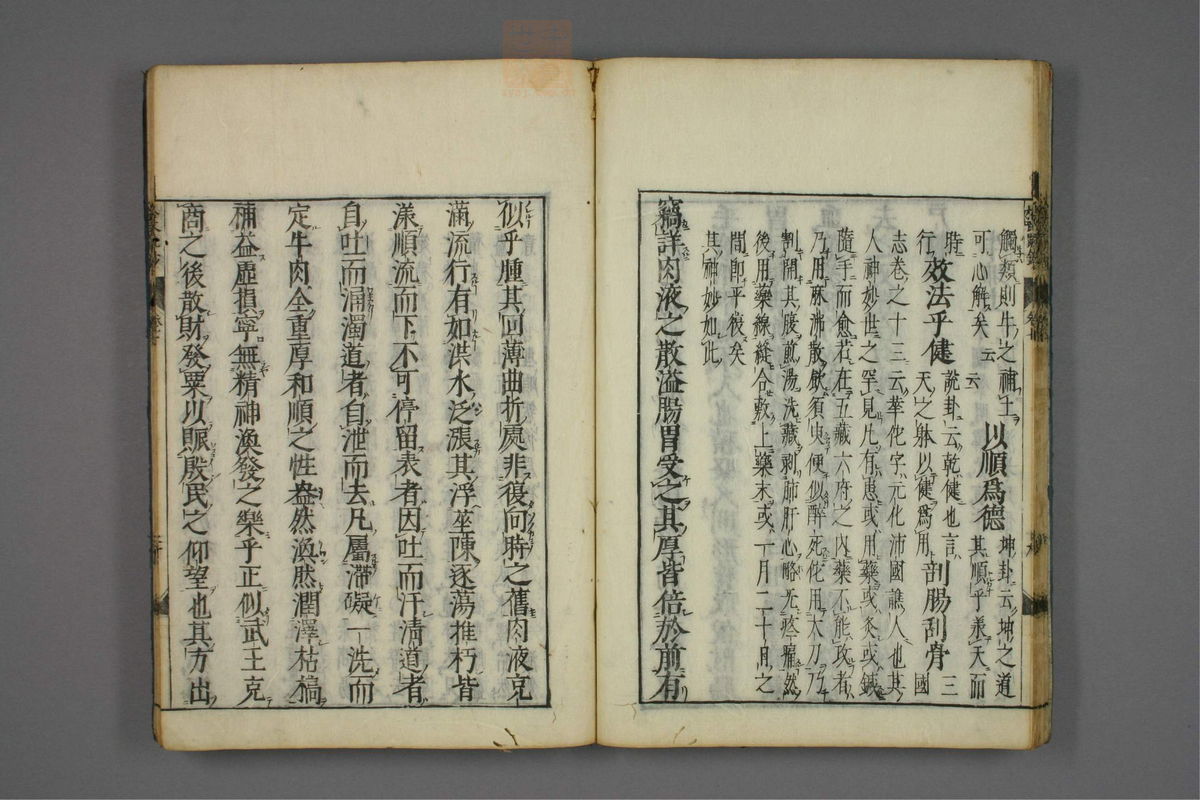 觸類則牛之補土 以順為德 坤卦云坤之道
可心解矣云云 其順乎羕天而
時行 效法乎健 說卦云乾健也言天之躰以健為用 剖腸刮骨 三國
志卷之十三云華佗字元化沛國譙人也其
人神妙世之罕見凡有患或用藥或灸或鍼
隨手而愈若在五藏六府之內藥不能攻者
乃用麻沸散飲須臾便似醉死佗用大刀乃
割開其腹煎湯洗藏剥肺肝心略无疼癰然
後用藥線縫合敷上藥末或一月二十日之
間即平復矣
其神妙如此
竊詳肉液之散溢腸胃受之其厚皆倍於前有
似乎腫其回薄曲折處非復向時之舊肉液克
滿流行有如洪水泛漲其浮莝陳逐蕩推朽皆
漾順流而下不可停留表者因吐而汗清道者
自吐而涌濁道者自泄而去凡屬滯礙一洗而
定牛肉全重厚和順之性盎然渙然潤澤枯槁
補益虛損寧無精神渙發之樂乎正似武王克
商之後散財發粟以賑殷民之仰望也其方出